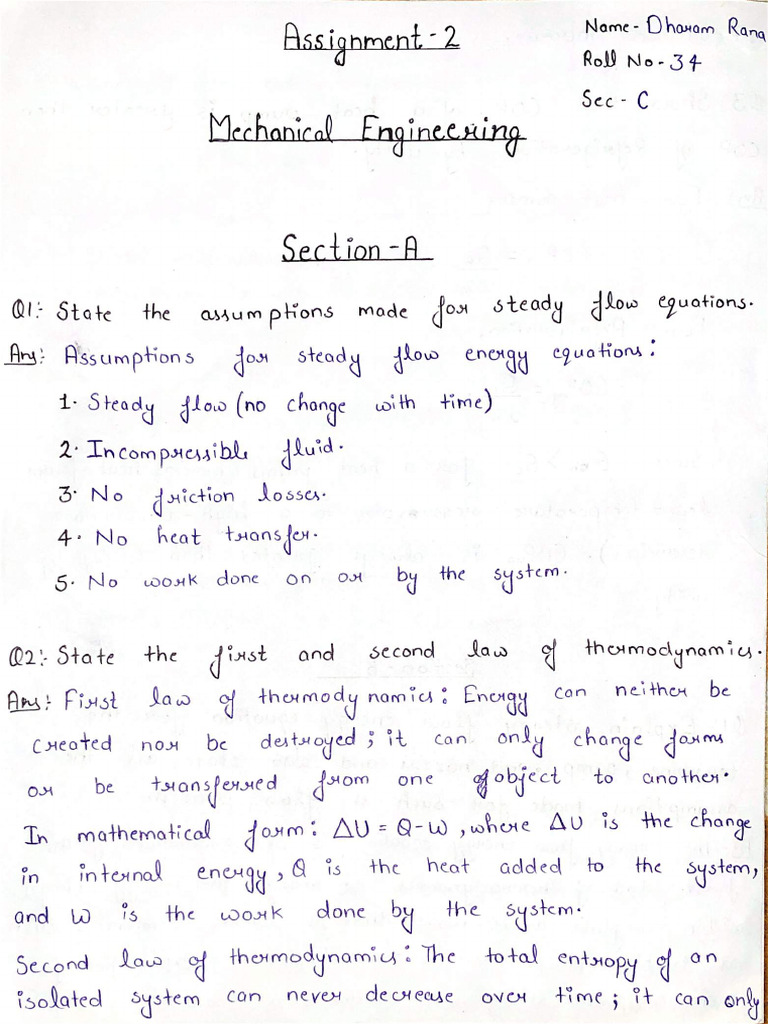 Assignment-2
Name- Dharam Rana
Roll No-34
Sec- C
Mechanical Engineering
Section-A
Q1:- State the assumptions made for steady flow equations.
Ans:- Assumptions for steady flow energy equations:
1. Steady flow (no change with time)
2. Incompressible fluid.
3. No friction losses.
4. No heat transfer.
5. No work done on or by the system.
Q2:- State the first and second law of thermodynamics.
Ans:- First law of thermodynamics: Energy can neither be
created nor be destroyed; it can only change forms
or be transferred from one object to another.
In mathematical form: ΔU = Q-W, where ΔU is the change
in internal energy, Q is the heat added to the system,
and W is the work done by the system.
Second law of thermodynamics: The total entropy of an
isolated system can never decrease over time; it can only